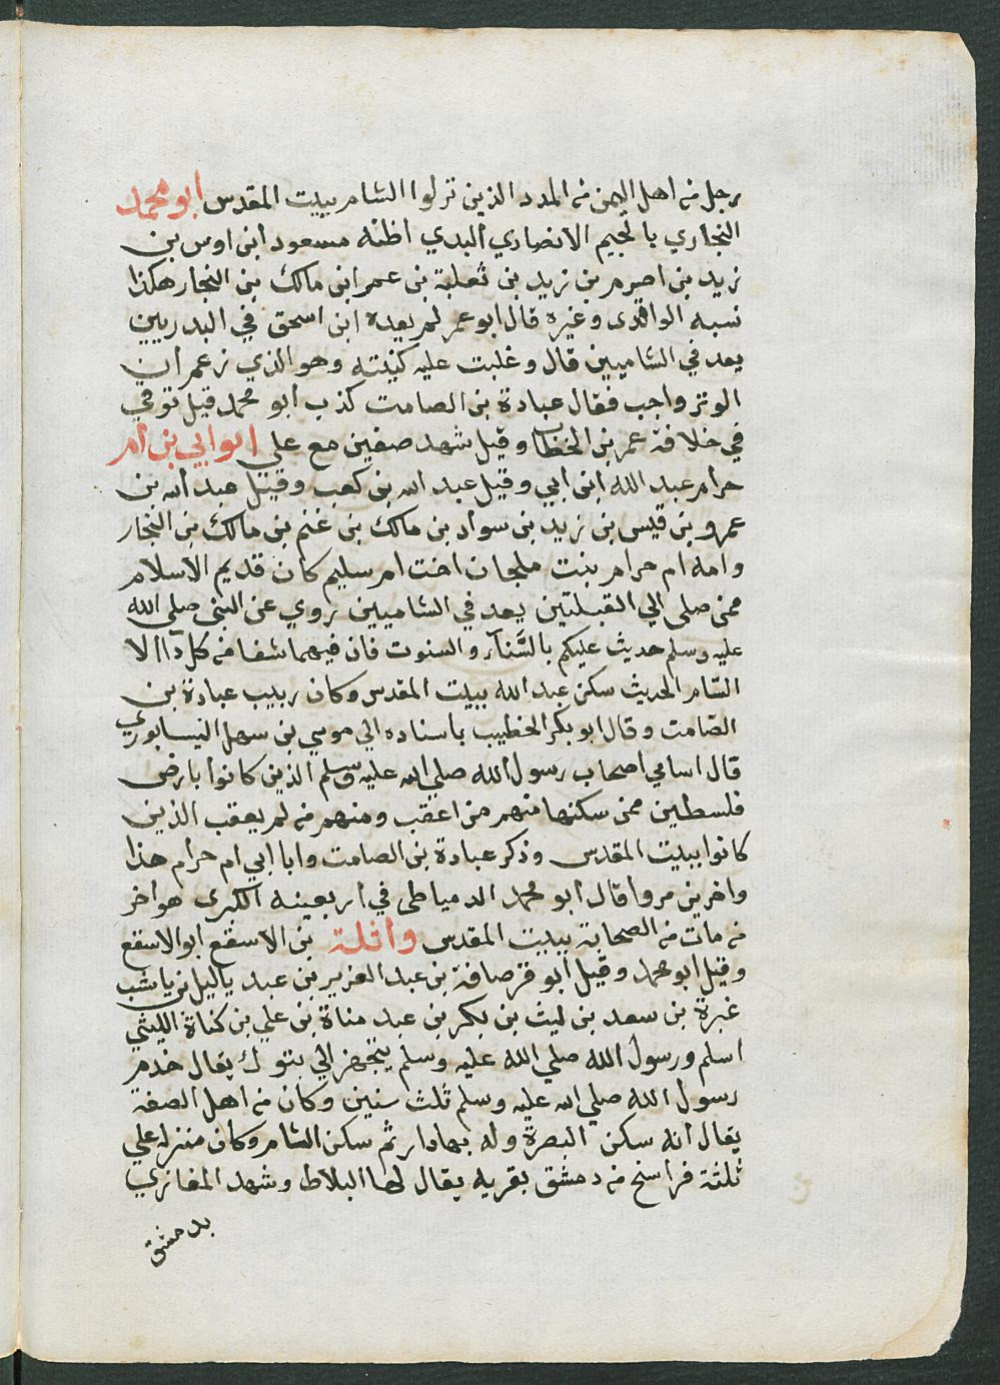 رجل من اهل اليمن من المدد الذين نزلوا الشام ببيت المقدس ابو محمد
النجاري بالجيم الانصاري البدي اظنه مسعود ابن اوس بن
زيد بن اصرم بن زيد بن ثعلبة بن عمر ابن مالك بن النجار هكذا
نسبه الواقدى وغيره قال ابو عمر لم يعده ابن اسحق في البدريين
يعد في الشاميين قال وغلبت عليه كنيته وهو الذي زعم ان
الوتر واجب فقال عبادة بن الصامت كذب ابو محمد قيل توفي
في خلافة عمر بن الخطاب وقيل شهد صفين مع علي ابو ابي بن ام
حرام عبد الله ابن ابي وقيل عبد الله بن كعب وقيل عبد الله بن
عمرو بن قيس بن زيد بن سواد بن مالك بن غنم بن مالك بن النجار
وامه ام حرام بنت ملحان اخت ام سليم كان قديم الاسلام
ممن صلى الي القبلتين يعد في الشاميين روي عن النبي صلى الله
عليه وسلم حديث عليكم بالسَّنآء والسنوت فان فيهما شفا من كل دآ الا
السام الحديث سكن عبد الله ببيت المقدس وكان ربيب عبادة بن
الصامت وقال ابو بكر الخطيب باسناده الي موسي بن سهل النيسابوري
قال اسامي اصحاب رسول الله صلي الله عليه وسلم الذين كانوا بارض
فلسطين ممن سكنها منهم من اعقب ومنهم من لم يعقب الذين
كانوا ببيت المقدس وذكر عبادة بن الصامت وابا ابي ام حرام هذا
واخرين مروا قال ابو محمد الدمياطى في اربعينه الكبرى هو اخر
من مات من الصحابة ببيت المقدس واثلة بن الاسقع ابو الاسقع
وقيل ابو محمد وقيل ابو قرصافة بن عبد العزير بن عبد ياليل بن ناشب
غبرة بن سعد بن ليث بن بكر بن عبد مناة بن علي بن كناة الليثي
اسلم ورسول الله صلي الله عليه وسلم يتجهز الي بتوك يقال خدم
رسول الله صلي الله عليه وسلم ثلث سنين وكان من اهل الصفة
يقال انه سكن البصرة وله بها دار ثم سكن الشام وكان منزله علي
ثلثة فراسخ من دمشق بقريه يقال لها البلاط وشهد المغازي
بدمشق